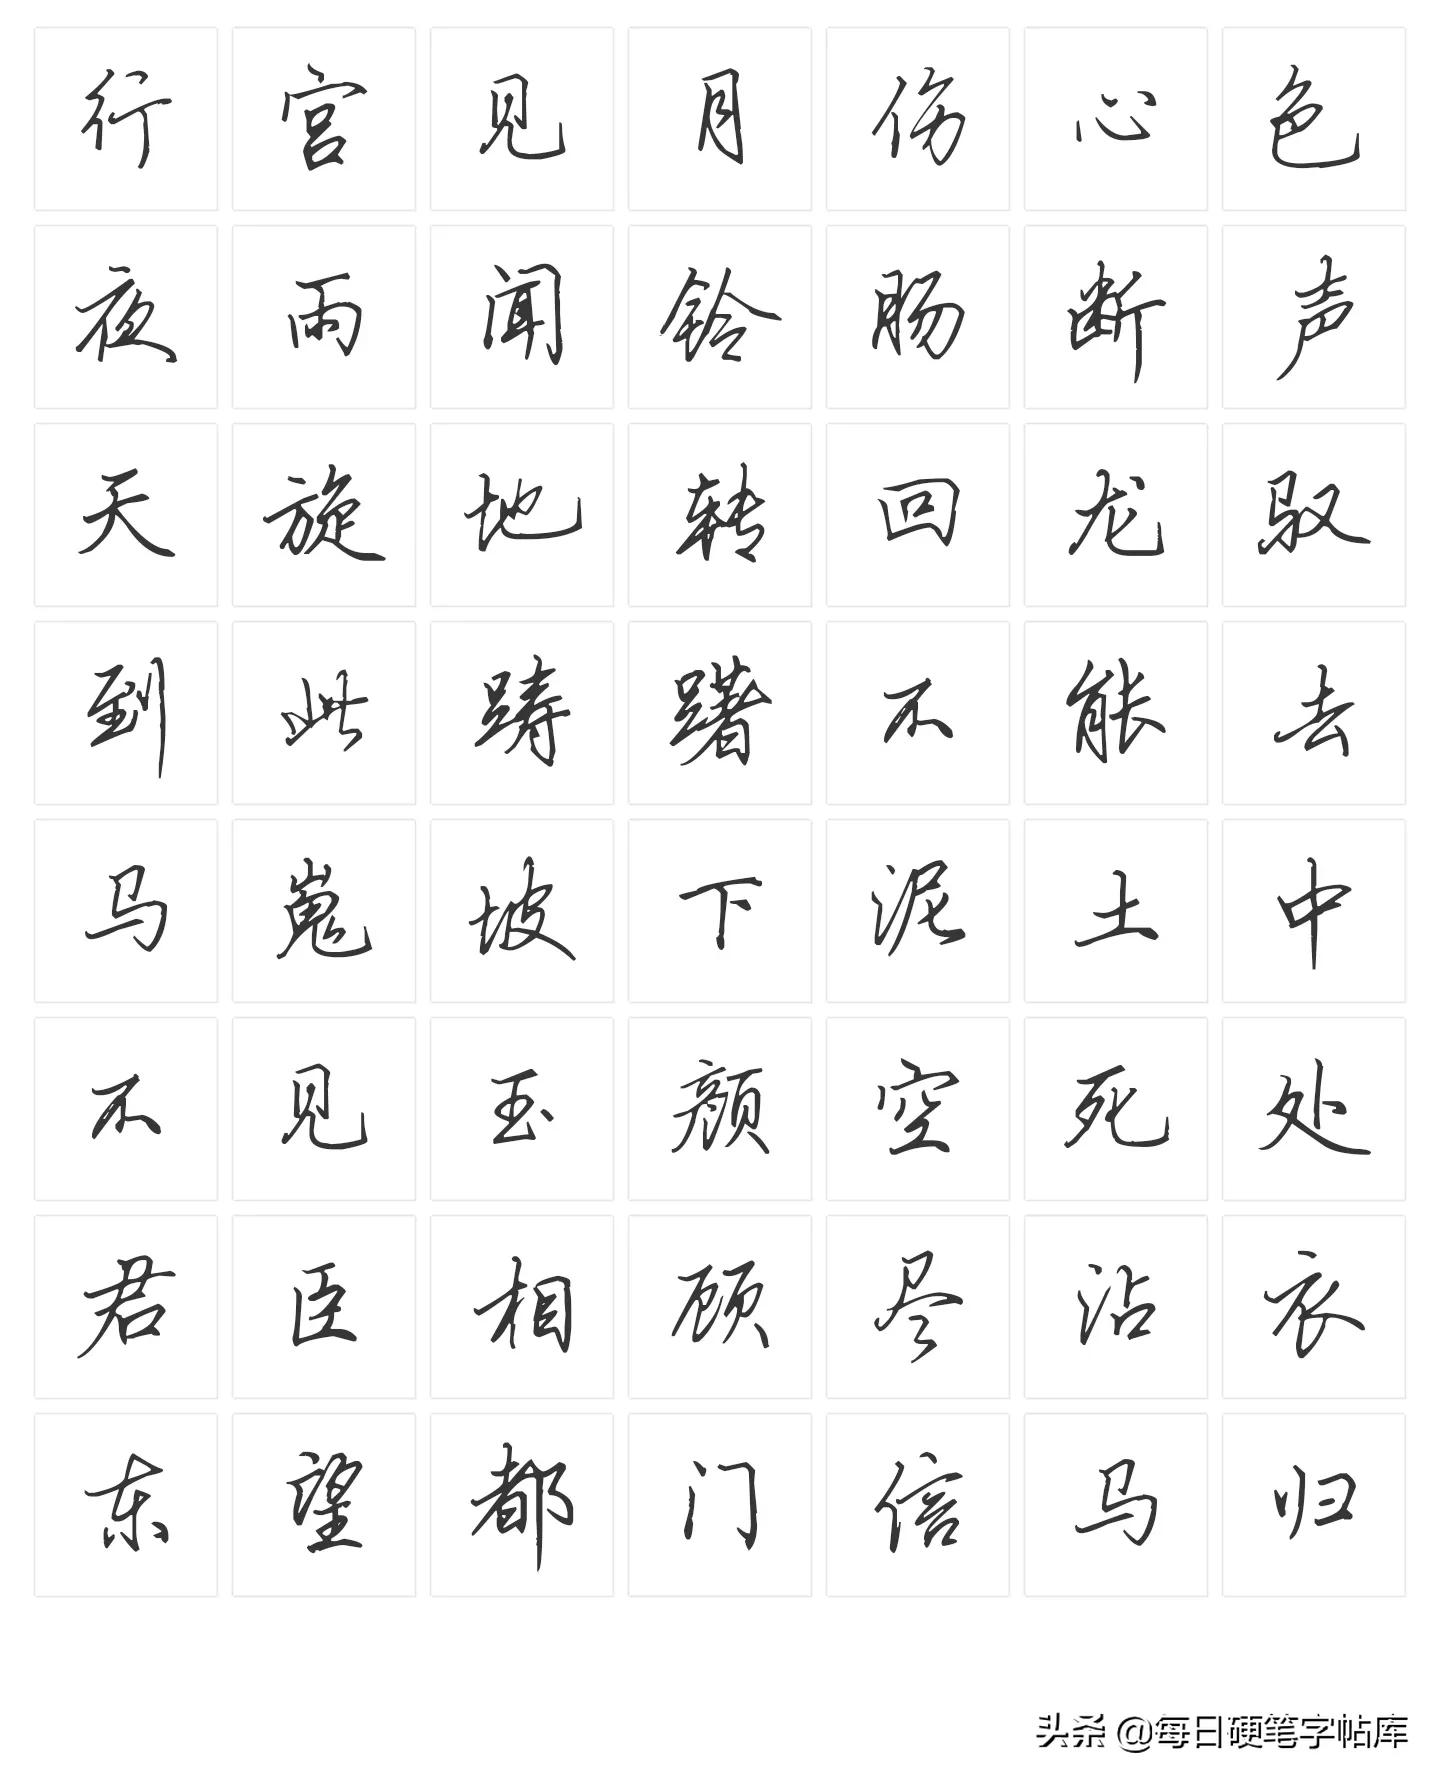 行宫见月伤心色
夜雨闻铃肠断声
天旋地转回龙驭
到此踌躇不能去
马嵬坡下泥土中
不见玉颜空死处
君臣相顾尽沾衣
东望都门信马归
头条 @每日硬笔字帖库